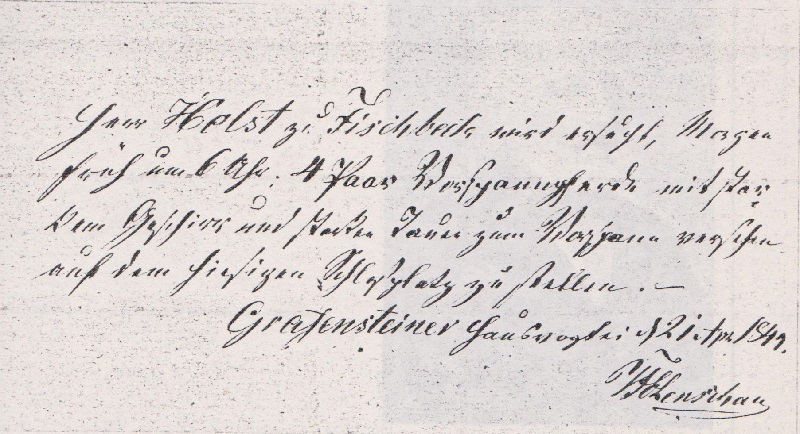 Herr Holst zu Fischbeck wird ersucht, Morgen
früh um 6 Uhr, 4 Paar Vorspannpferde mit star,
kem Geschirr und starken Tauen zum Vorspann versehen
auf dem hiesigen Schloßplatz zu stellen. –
Grafensteiner Hausvogtei d 21 Apr 1849.